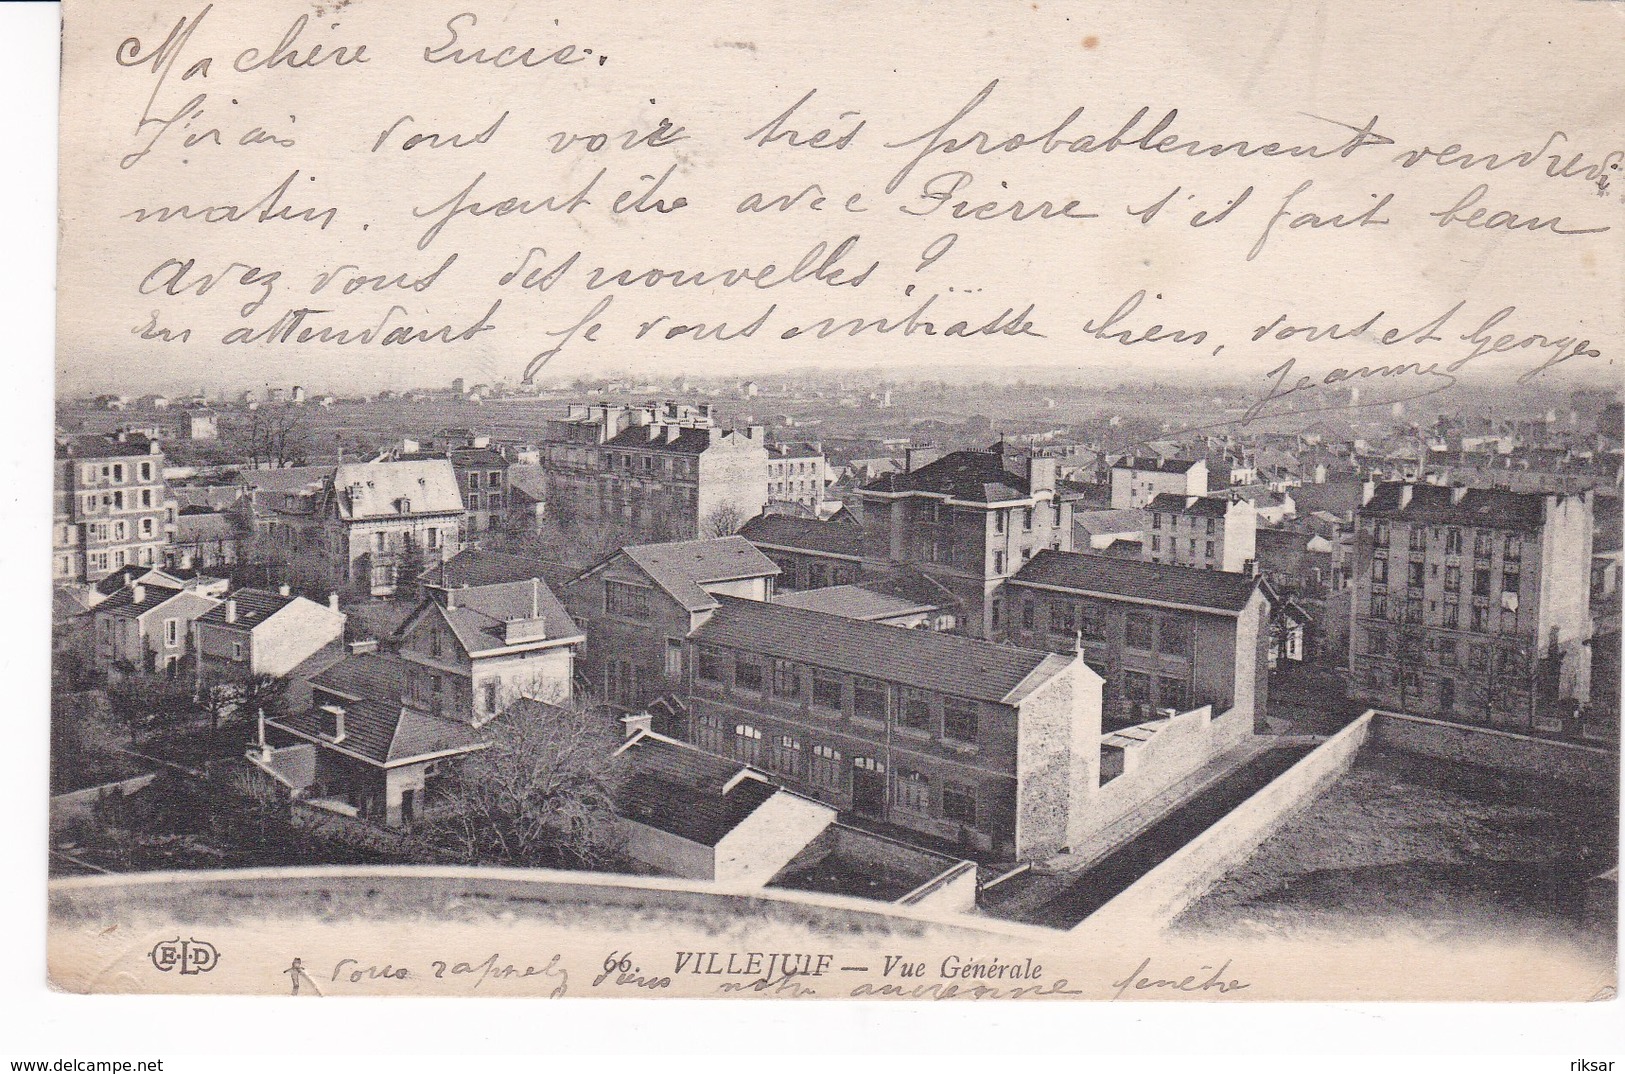 Ma chère Lucie.
J'irais vous voir très probablement vendredi
matin, peut être avec Pierre s'il fait beau
Avez vous des nouvelles ? ...
En attendant je vous embrasse bien, vous et Georges.
Jeanne
E.L.D
66. VILLEJUIF — Vue Générale
vous rappelez notre ancienne fenêtre
riksar